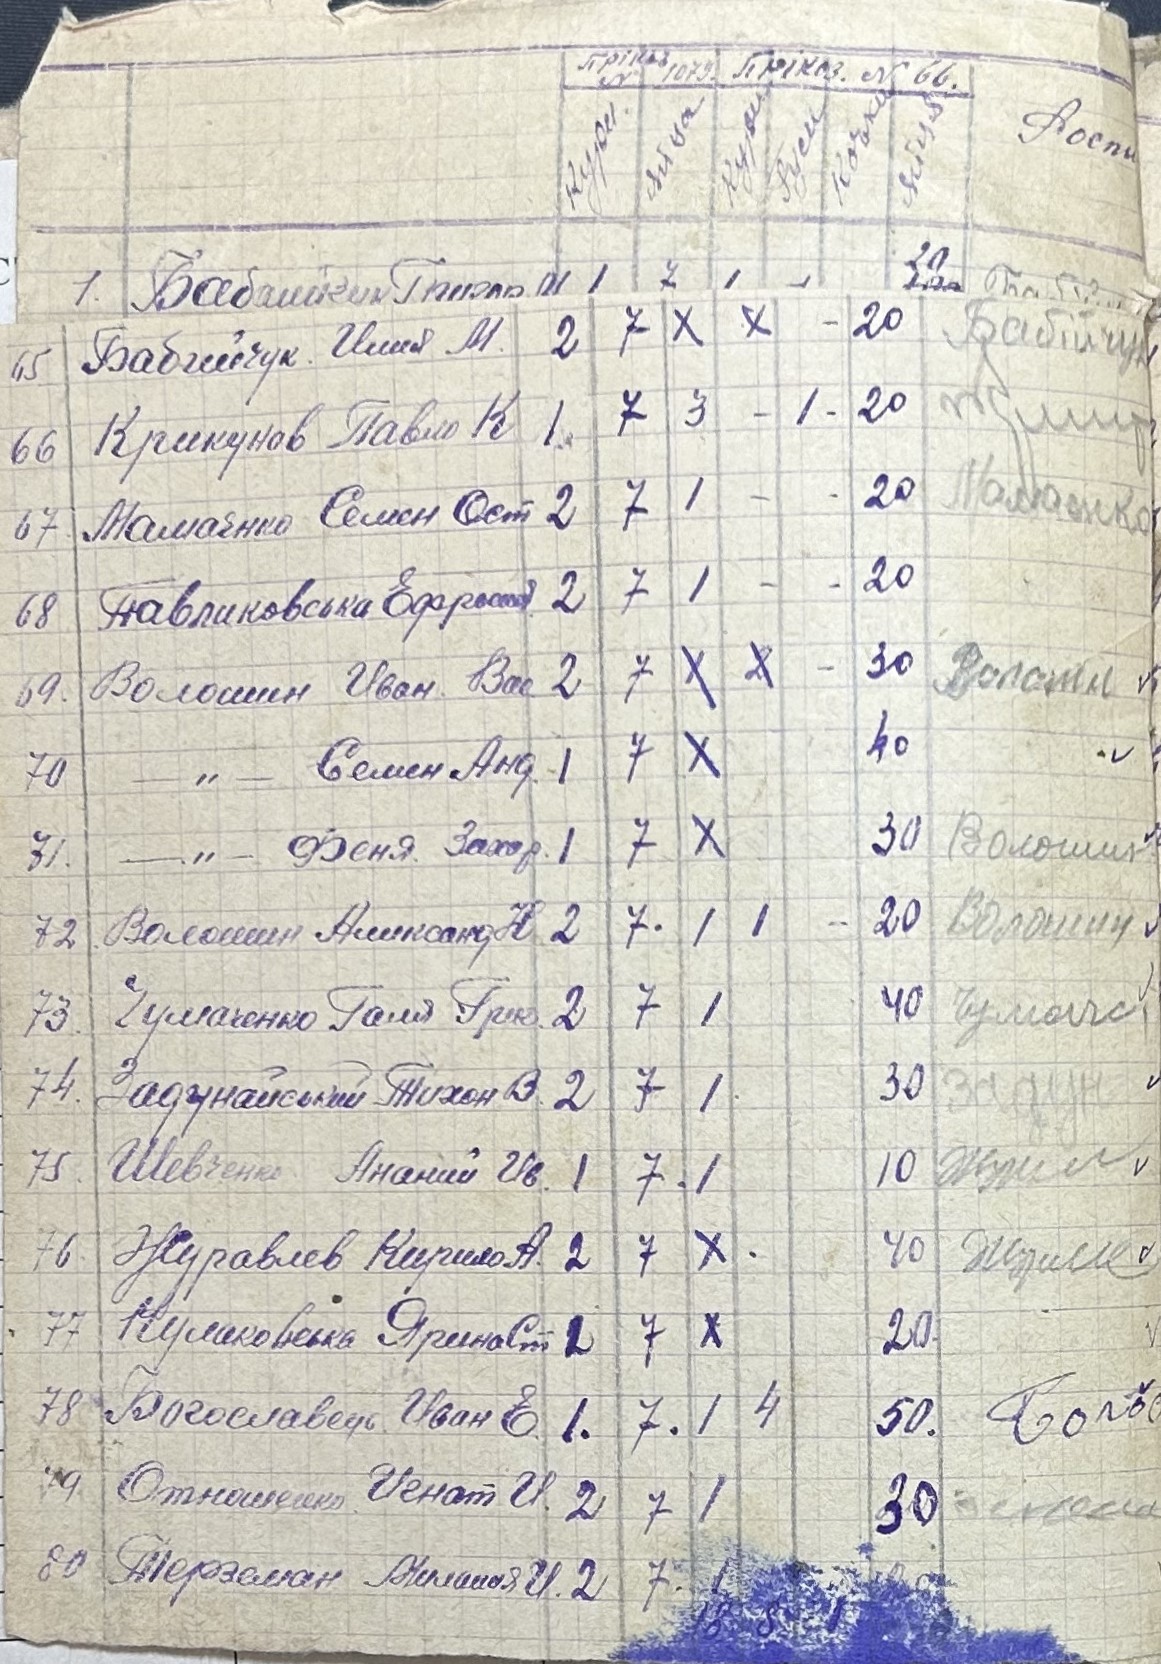 Пріказ № 1079. Пріказ. № 66.
Кури. Яйца Кури Гуси Качки Яйця Роспи
1. Бабашкин 1 7 1 - 20
65 Бабийчук. Илия М. 2 7 X X - 20 Бабійчук
66 Крикунов Павло К 1. 7 3 - 1 - 20
67 Мамаченко Семен Ост 2 7 1 - - 20 Мамаенко
68 Павликовська 2 7 1 - - 20
69. Волошин Иван. Вас 2 7 X X - 30 Волошин
70 — „ — Семен Анд. 1 7 X 40
71. — „ — Феня. Захар. 1 7 X 30 Волошин
72. Волошин Александ 2 7. 1 1 - 20 Волошин
73. Чумаченко Галя Григ. 2 7 1 40 Чумаче
74. Задунайський Тихон В. 2 7 1. 30 Задун
75. Шевченко Ананий Ив. 1 7. 1 10
76. Журавлев Кирило А. 2 7 X. 40
77 Кулаковська Ярина Ст 2 7 X 20.
78 Богославець Иван Е. 1. 7. 1 4 50.
79. Игнат И. 2 7 1 30
80 Терземан И. 2 7. 1
18 8 1